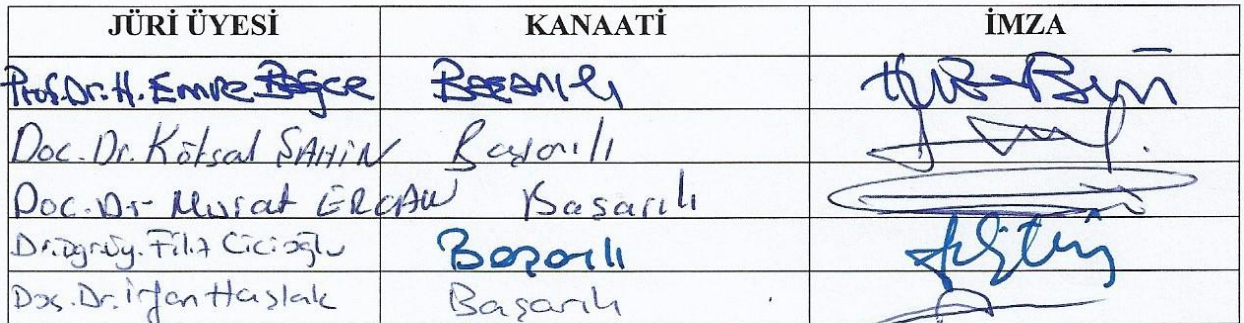 JÜRİ ÜYESİ KANAATİ İMZA
Prof. Dr. H. Emre Bağce Başarılı
Doc. Dr. Köksal ŞAHİN Başarılı
Doc. Dr. Murat ERCAN Başarılı
Dr. Öğr. Üy. Filiz Cicioğlu Başarılı
Doç. Dr. İrfan Haşlak Başarılı